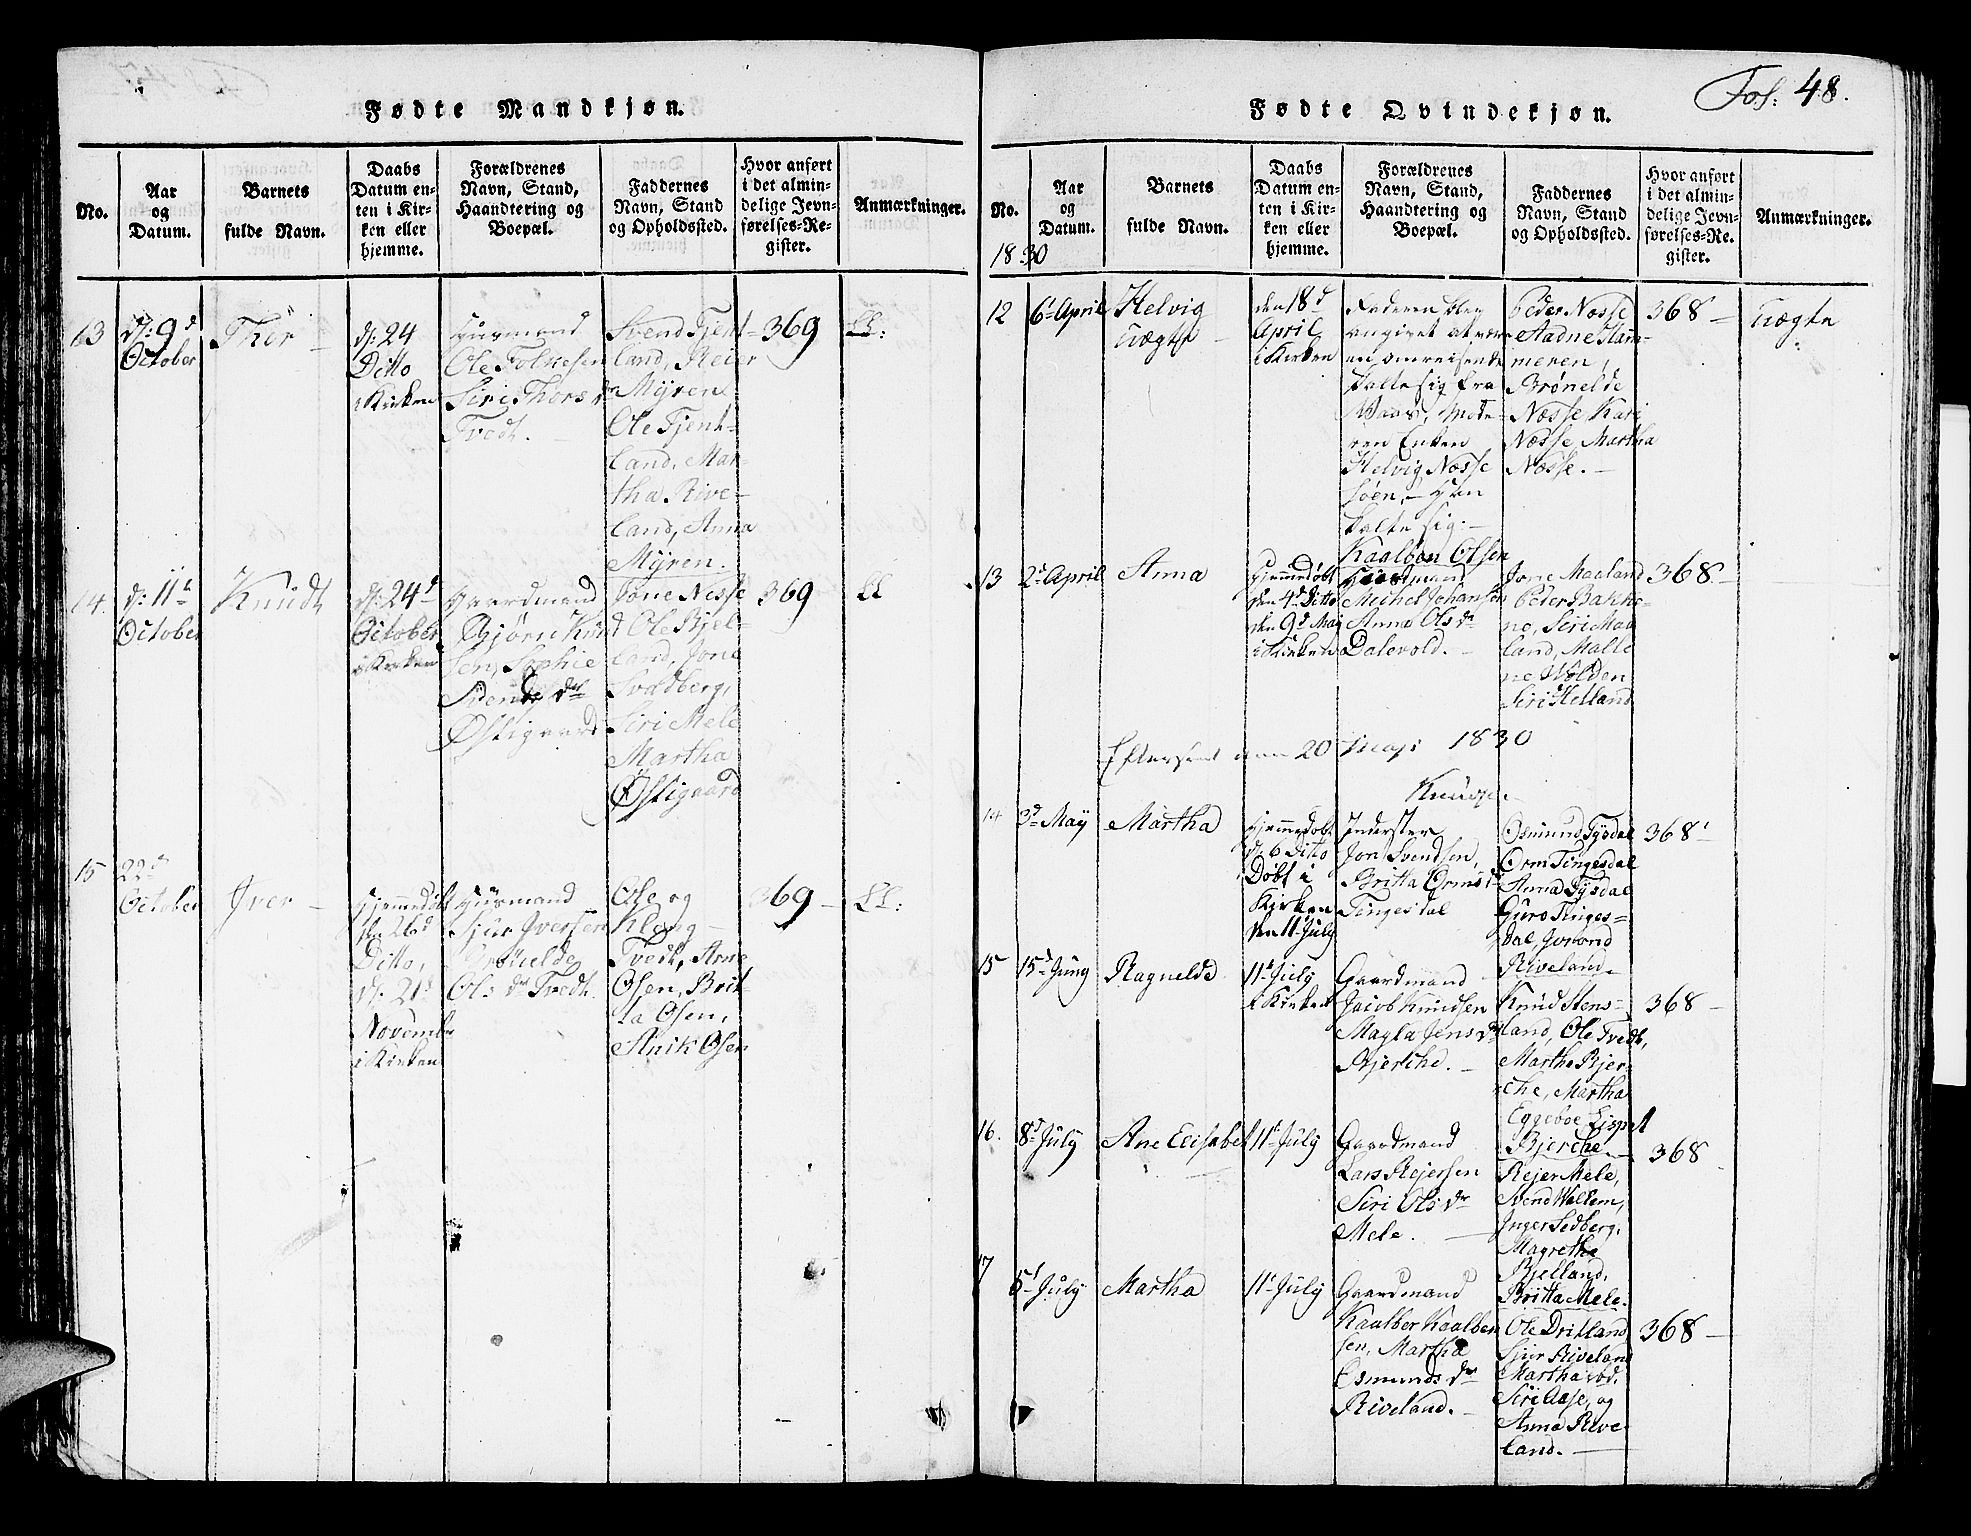 Fol. 48.
Fødte Mandkjøn.
No.
Aar
og
Datum.
Barnets
fulde Navn.
Daabs
Datum en-
ten i Kir-
ken eller
hjemme.
Forældrenes
Navn, Stand,
Haandtering og
Boepæl.
Faddernes
Navn, Stand
og Opholdssted.
Hvor anført
i det almin-
delige Jevn-
førelses-Re-
gister.
Anmærkninger.
13
d: 9d
October
Thor
d: 24
Ditto
i Kirken
Huusmand
Ole Tolvsen
Siri Thors dr
Tvedt.
Svend Fjent-
land, Reier
Myren,
Ole Fjent-
land, Mar-
tha Rive-
land, Anna
Myren.
369
14.
d: 11te
October
Knudt
d: 24d
October
i Kirken
Gaardmand
Bjørn Knud
sen, Sophie
Svends dr
Østigaard
Jone Nesse
Ole Bjel-
land, Jone
Svadberg,
Siri Mele
Martha
Østigaard
369
15
22d
October
Iver
Hjemmedøbt
den 26d
Ditto,
d: 21d
Novembr
i Kirken
Huusmand
Sjur Iversen
Ols dr Tvedt.
Ole og
Tvedt, Arne
Osen, Brit-
ta Osen,
Anik Osen
369
Fødte Qvindekjøn.
No.
1830
Aar
og
Datum.
Barnets
fulde Navn.
Daabs
Datum en-
ten i Kir-
ken eller
hjemme.
Forældrenes
Navn, Stand,
Haandtering og
Boepæl.
Faddernes
Navn, Stand
og Opholdssted.
Hvor anført
i det almin-
delige Jevn-
førelses-Re-
gister.
Anmærkninger.
12
6t April
Helvig
Uægte
den 18d
April
i Kirken
Faderen blev
angivet at vær-
en omreisende
kalte sig Fra
Mode-
ren Enken
Helvig Nesse
søen, Han
kalte sig:
Kaalben Olsen
Peder Nesse
Aadne Ham-
meren,
Brønelde
Nesse Kari
Nesse, Martha
Nesse.
368
Uægte
13
2d April
Anna
Hjemmedøbt
den 4d Ditto
den 9d May
i Kirken
Michel Johansen
Anna Ols dr
Dalevold.
Jone Maaland
Peder Bakke-
ne, Siri Maa
land, Malle
ne Wolden
Siri Helland
368
Efterseet den 20 May 1830
14
3d May
Martha
Hjemmedøbt
d: 6 Ditto
Døbt i
Kirken
den 11t July
Inderster
Jon Svendsen,
Britta Orms d
Tingesdal
Osmund Tysdal
Orm Tingesdal
Anna Tysdal
Guro Tinges-
dal,
Riveland
368
15
15d Juny
Ragnelde
11t July
i Kirken
Gaardmand
Jacob Knudsen
Magla Jens dr
Bjerche.
Knud Stens-
land, Ole Tvedt,
Martha Bjer-
che, Martha
Eggeboe Lispet
Bjerche
368
16.
8d July
Ane Elisabet
11t July
Gaardmand
Lars Rejersen
Siri Ols dr
Mele.
Rejer Mele,
Svend Wallem,
Inger Sedberg,
Magrethe
Bjelland,
Britta Mele.
368
17
5t July
Martha
11t July
Gaardmand
Kaalber Kaalben
sen, Martha
Osmunds dr
Riveland.
Ole Dritland
Sjur Riveland
Martha ibd.
Siri Aase, og
Anna Rive-
land.
368